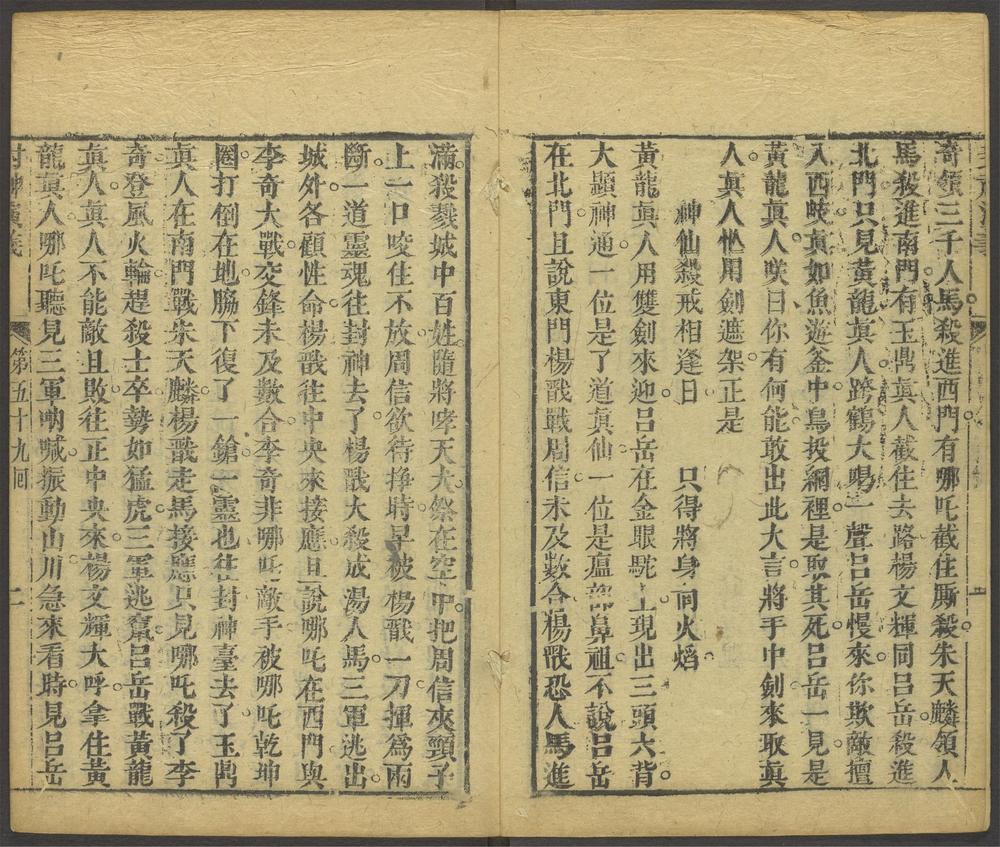 奇領三千人馬殺進西門有哪吒截住厮殺朱天麟領人
馬殺進南門有玉鼎真人截住去路楊文輝同呂岳殺進
北門只見黃龍真人跨鶴大喝一聲呂岳慢來你欺敵擅
入西岐真如魚遊釜中鳥投網裡是取其死呂岳一見是
黃龍真人咲曰你有何能敢出此大言將手中劍來取真
人真人忙用劍遮架正是
神仙殺戒相逢日 只得將身向火𤌴
黃龍真人用雙劍來迎呂岳在金眼駝上現出三頭六背
大顯神通一位是了道真仙一位是瘟部鼻祖不說呂岳
在北門且說東門楊戩戰周信未及數合楊戩恐人馬進
滿殺戮城中百姓隨將哮天犬祭在空中把周信夾頸子
上一口咬住不放周信欲待掙時早被楊戩一刀揮爲兩
斷一道靈魂往封神去了楊戩大殺成湯人馬三軍逃出
城外各顧性命楊戩往中央來接應且說哪吒在西門與
李奇大戰交鋒未及數合李奇非哪吒敵手被哪吒乾坤
圈打倒在地脇下復了一鎗一靈也往封神臺去了玉鼎
真人在南門戰朱天麟楊戩走馬接應只見哪吒殺了李
奇登風火輪趕殺士卒勢如猛虎三軍逃竄呂岳戰黃龍
真人真人不能敵且敗往正中央來楊文輝大呼拿住黃
龍真人哪吒聽見三軍吶喊振動山川急來看時見呂岳
封神演義 第五十九回 二